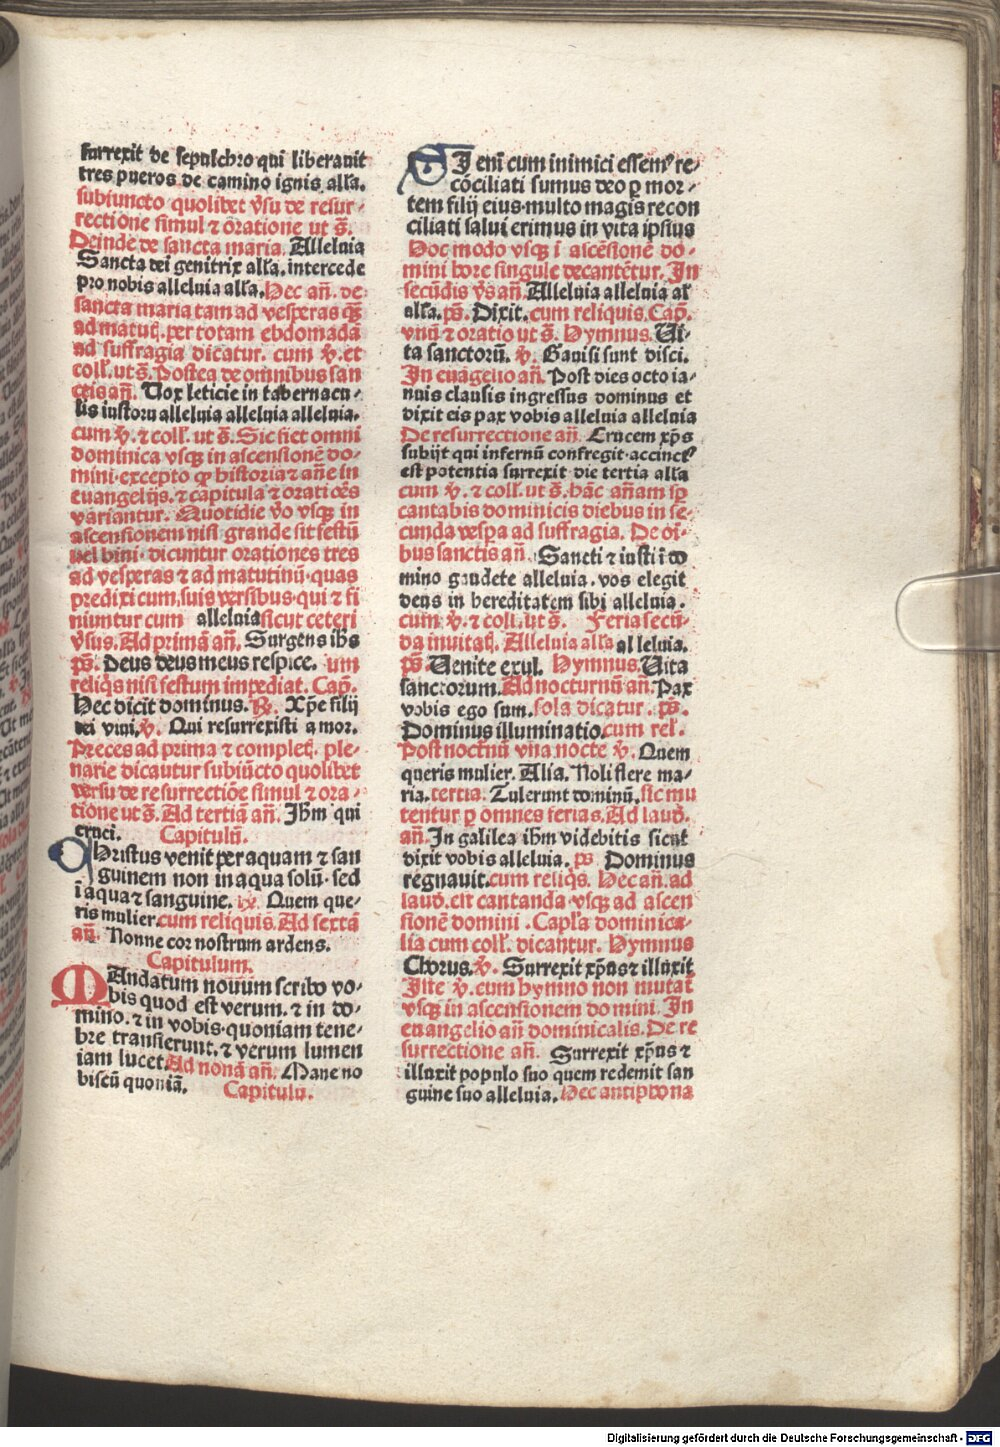 surrexit de sepulchro qui liberauit
tres pueros de camino ignis alľa.
subiuncto quolibet ṽsu de resur⸗
rectione simul ⁊ oratione ut s̄.
Deinde de sancta maria. Alleluia
Sancta dei genitrix alľa. intercede
pro nobis alleluia alľa. Hec añ. de
sancta maria tam ad vesperas q̃ꝫ
ad matut̃. per totam ebdomadā
ad suffragia dicatur. cum ℣. et
coll̃. ut s̄. Postea de omnibus san
ctis añ. Vox leticie in tabernacu⸗
lis iustorū alleluia alleluia alleluia.
cum ℣. ⁊ coll̃. ut s̄. Sic fiet omni
dominica vsqꝫ in ascensionē do⸗
mini·excepto ꝙ historia ⁊ añe in
euangelijs. ⁊ capitula ⁊ oratiões
variantur. Quotidie ṽo vsqꝫ in
ascensionem nisi grande sit festū
vel bini· dicuntur orationes tres
ad vesperas ⁊ ad matutinū·quas
predixi cum, suis versibus·qui ⁊ fi
niuntur cum alleluia sicut ceteri
ṽsus. Ad primā añ. Surgens ih̄s
ps̄. Deus deus meus respice. um
reliq̄s nisi festum impediat. Cap̃.
Hec dicit dominus. ℟. Xp̄e filij
dei viui. ℣. Qui resurrexisti a mor.
Preces ad prima ⁊ complet̃. ple⸗
narie dicautur subiūcto quolibet
versu de resurrectiõe simul ⁊ ora⸗
tione ut s̄. Ad tertiā añ. Ih̄m qui
cruci. Capitulū.
CHristus venit per aquam ⁊ san
guinem non in aqua solū· sed
ī aqua ⁊ sanguine. ℣. Quem que⸗
ris mulier. cum reliquis. Ad sextā
añ. Nonne cor nostrum ardens.
Capitulum.
MAndatum nouum scribo vo⸗
bis quod est verum. ⁊ in do⸗
mino. ⁊ in vobis·quoniam tene⸗
bre transierunt. ⁊ verum lumen
iam lucet. Ad nonā añ. Mane no
biscū quoniā. Capitulu.
SI eni cum inimici essemꝰ re⸗
cōciliati sumus deo ꝑ mor⸗
tem filij eius·multo magis recon
ciliati salui erimus in vita ipsius
Hoc modo vsqꝫ ī ascēsionē do⸗
mini hore singule decantētur. In
secūdis ṽs añ. Alleluia alleluia al
alľa. ps̄. Dixit. cum reliquis. Cap̃.
vnū ⁊ oratio ut s̄. Hymnus. Ui⸗
ta sanctorū. ℣. Gauisi sunt disci.
In euāgelio añ. Post dies octo ia⸗
nuis clausis ingressus dominus et
dixit eis pax vobis alleluia alleluia
De resurrectione añ. Crucem xp̄s
subijt qui infernū confregit·accinctꝰ
est potentia surrexit die tertia alľa
cum ℣. ⁊ coll̃. ut s̄. hāc añam sꝑ
cantabis dominicis diebus in se⸗
cunda vespa ad suffragia. De oī⸗
bus sanctis añ. Sancti ⁊ iusti ī do
mino gaudete alleluia. vos elegit
deus in hereditatem sibi alleluia.
cum ℣. ⁊ coll. ut s̄. Feria secū⸗
da inuitat̃. Alleluia alľa alleluia.
ps̄. Uenite exul. Hymnus. Uita
sanctorum. Ad nocturnū añ. Pax
vobis ego sum. sola dicatur. ps̄.
Dominus illuminatio. cum rel̃.
Post noctnū vna nocte ℣. Quem
queris mulier. Alia. Noli flere ma⸗
ria. tertia. Tulerunt dominū. sic mu
tentur ꝑ omnes ferias. Ad laud̃.
añ. In galilea ih̄m videbitis sicut
dixit vobis alleluia. ps̄ Dominus
regnauit. cum reliq̄s. Hec añ. ad
laud̃. est cantanda vsqꝫ ad ascen
sionē domini. Capľa dominica⸗
lia cum coll̃. dicantur. Hymnus
Chorus. ℣. Surrexit xp̄us ⁊ illuxit
Iste ℣. cum hymno non mutat̃
vsqꝫ in ascensionem domini. In
euangelio añ dominicalis. De re
surrectione añ. Surrexit xp̄us ⁊
illuxit populo suo quem redemit san
guine suo alleluia. Hec antiphona
Digitalisierung gefördert durch die Deutsche Forschungsgemeinschaft - DFG